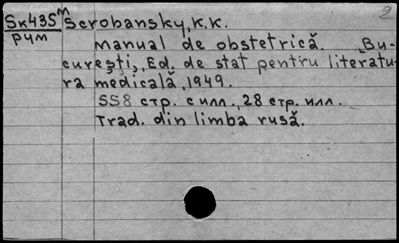 2
Sk435 M Scrobansky, K.K.
РУМ
Manual de obstetrică. Bu-
curești, Ed. de stat pentru literatu-
ra medicală, 1949.
558 стр. с илл., 28 стр. илл.
Trad. din limba rusă.